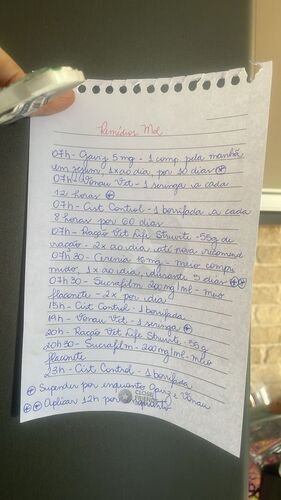 Remédios Mel
07h - Gaviz 5mg - 1 comp. pela manhã
em jejum, 1x ao dia, por 10 dias *
07h - Vonau Vet - 1 seringa a cada
12 horas *
07h - Cist Control - 1 borrifada a cada
8 horas por 60 dias
07h - Ração Vet Life Struvite - 55g de
ração - 2x ao dia até nova recomend
07h30 - Cerenia 16mg - meio compri
mido, 1x ao dia, durante 5 dias **
07h30 - Sucrafilm 200mg/ml - meio
flaconete - 2x por dia
15h - Cist Control - 1 borrifada
19h - Vonau Vet - 1 seringa *
20h - Ração Vet Life Struvite - 55g
20h30 - Sucrafilm - 200mg/ml - meio
flaconete
23h - Cist Control - 1 borrifada
* Supender por enquanto Gaviz e Vonau
** Aplicar 12h por